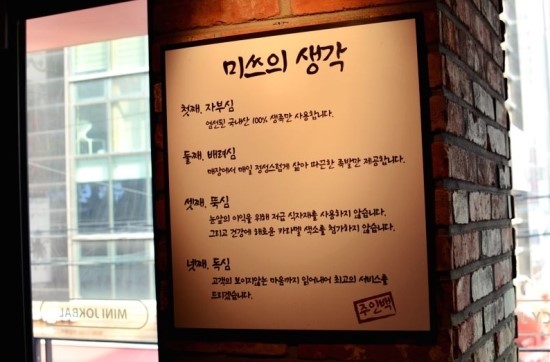 미쓰의 생각
첫째, 자부심
엄선된 국내산 100% 생족만 사용합니다.
둘째, 배려심
매장에서 매일 정성스럽게 삶아 따끈한 족발만 제공합니다.
셋째, 뚝심
눈앞의 이익을 위해 저급 식자재를 사용하지 않습니다.
그리고 건강에 해로운 카라멜 색소를 첨가하지 않습니다.
넷째, 독심
고객의 보이지않는 마음까지 읽어내어 최고의 서비스를
드리겠습니다.
주인백
MINI JOKBAL